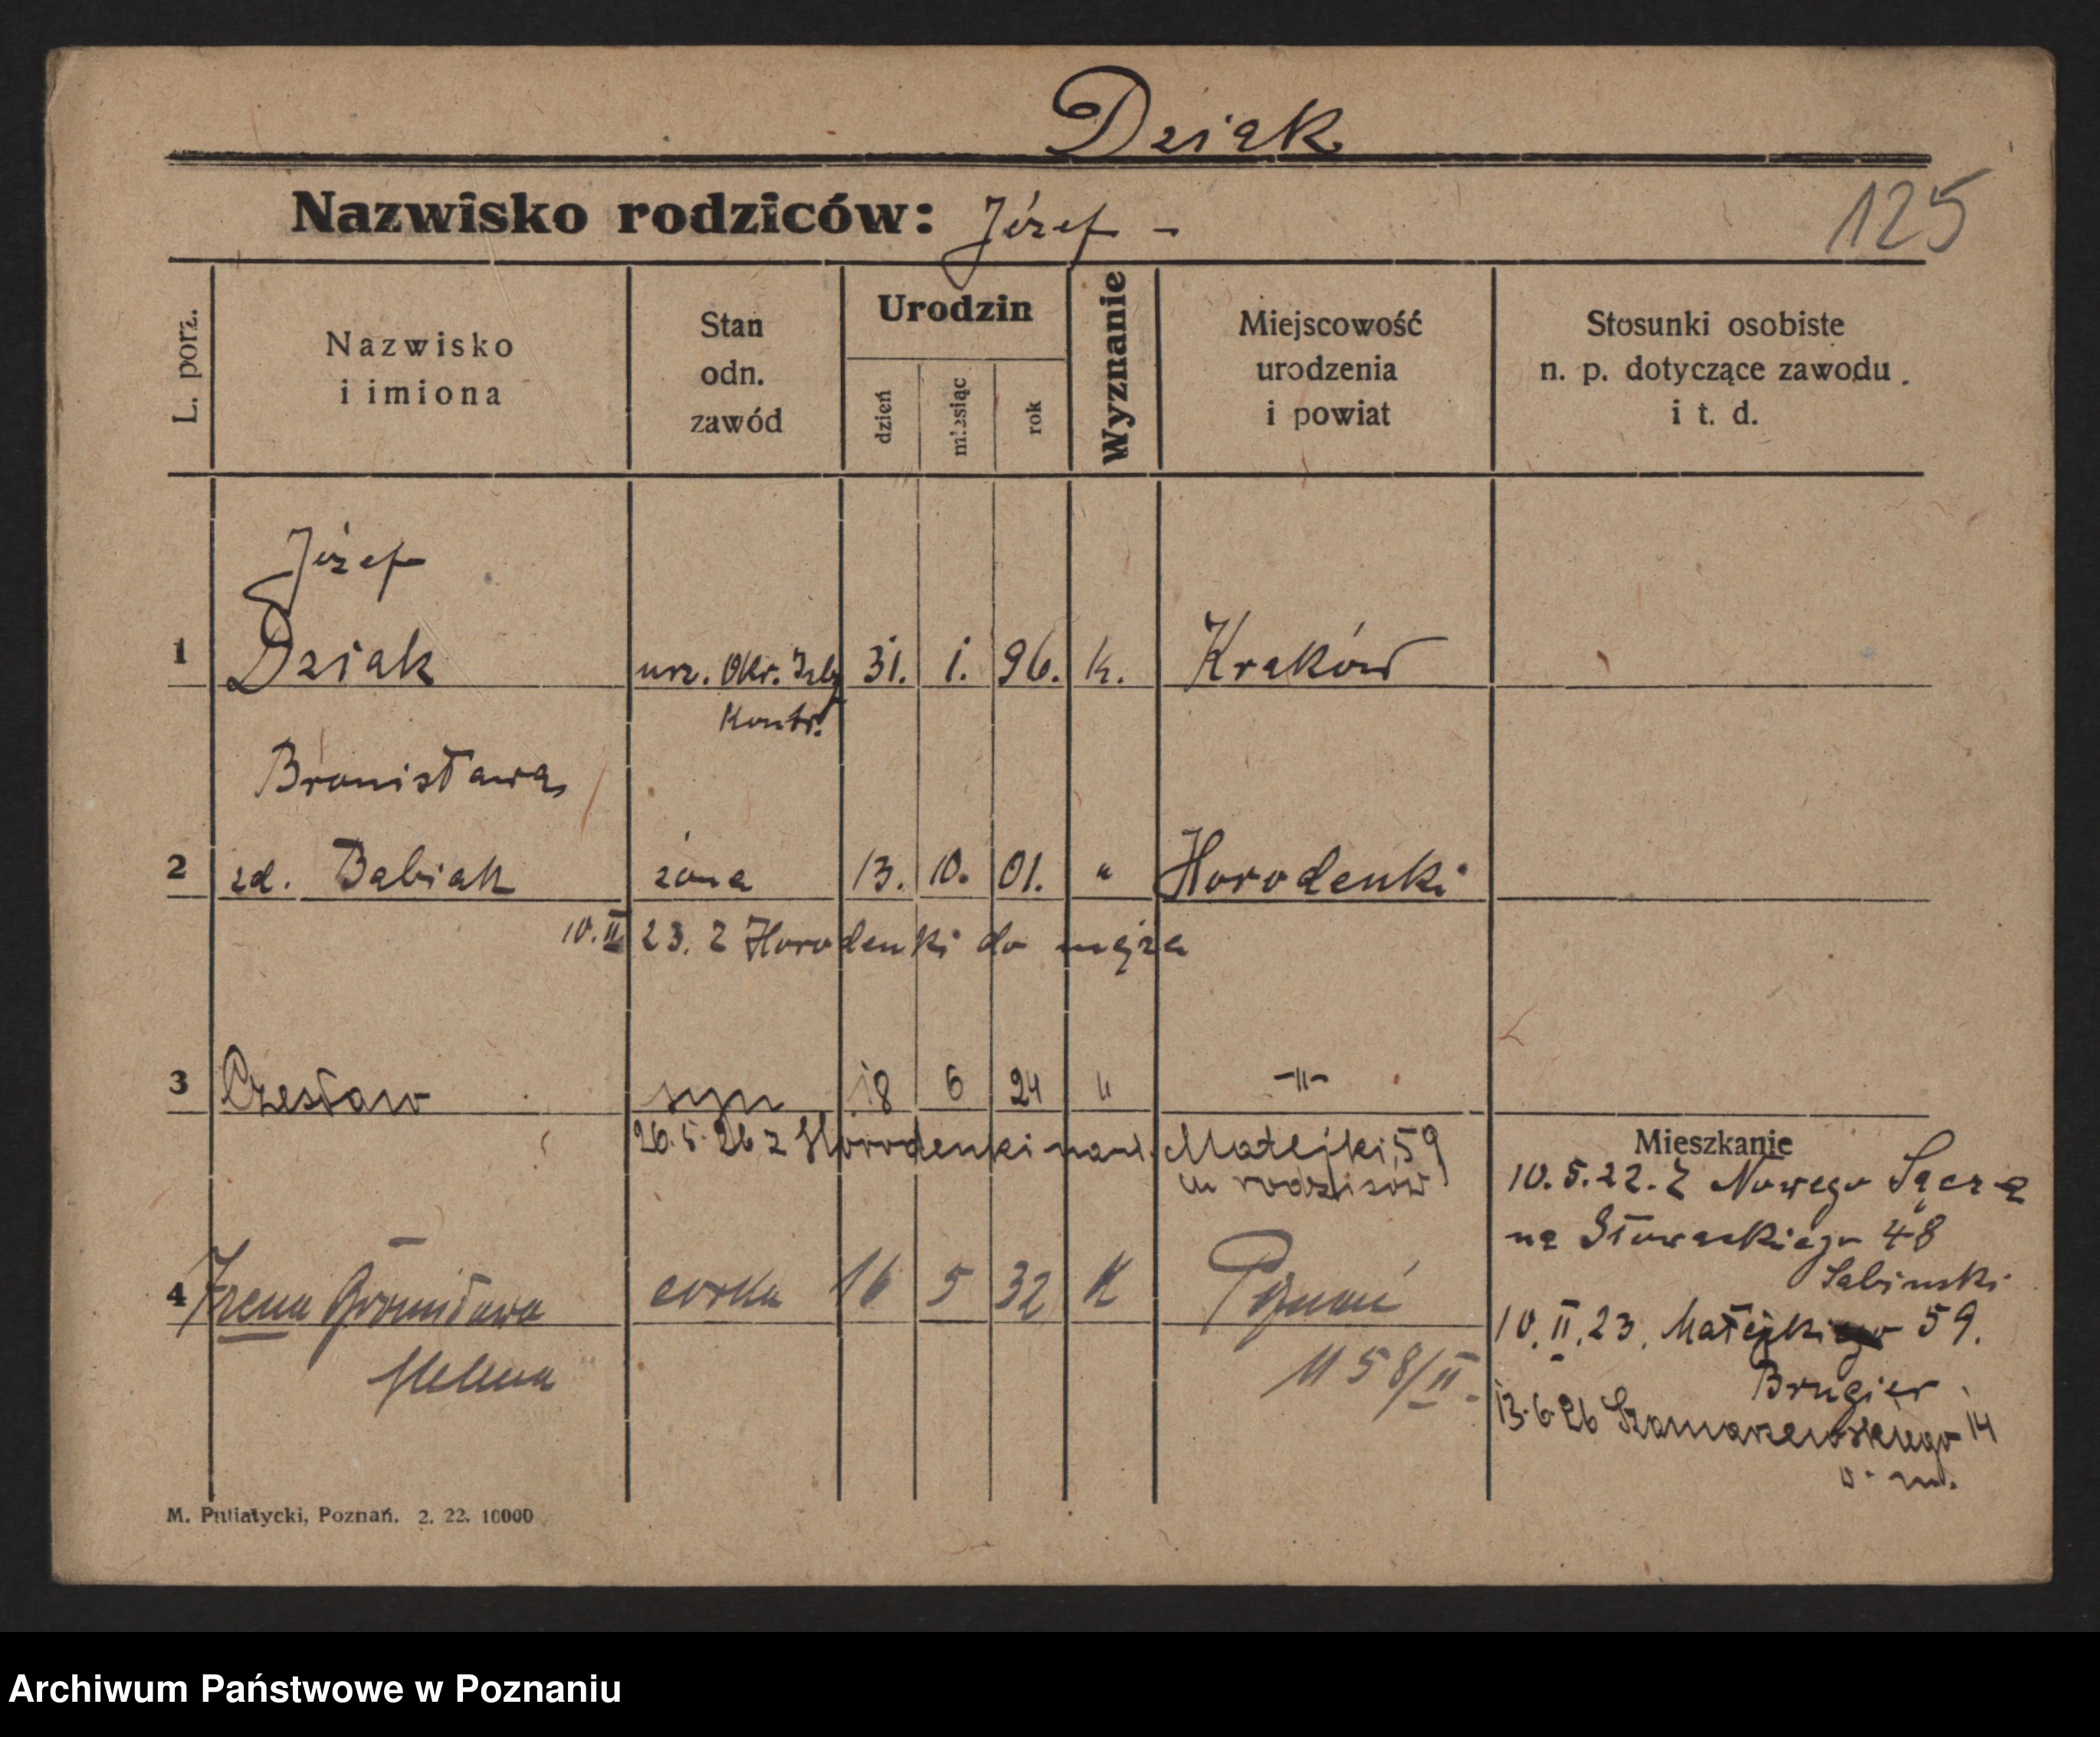 Dziak
Nazwisko rodziców: Józef -
125
L. porz.
Nazwisko
i imiona
Stan
odn.
zawód
Urodzin
dzień
miesiąc
rok
Wyznanie
Miejscowość
urodzenia
i powiat
Stosunki osobiste
n. p. dotyczące zawodu.
i t. d.
Józef
1 Dziak urz. Okr. Izby 31. 1. 96. k. Kraków
Kontr.
Bronisława
2 zd. Babiak żona 13. 10. 01. " Horodenki
10.II 23. z Horodenki do męża
3 Czesław syn 18 6 24 " -"-
26.5.26 z Horodenki na Matejki 59
u rodziców
Mieszkanie
10.5.22. Z Nowego Sącza
na Słowackiego 48
Sabinski
4 Irena Bronisława córka 16 5 32 K Poznań
Helena
58/II.
10.II.23. Matejki 59.
Brugier
13.6.26 Szamarzewskiego 14
v. m.
M. Putiatycki, Poznań. 2. 22. 10000
Archiwum Państwowe w Poznaniu